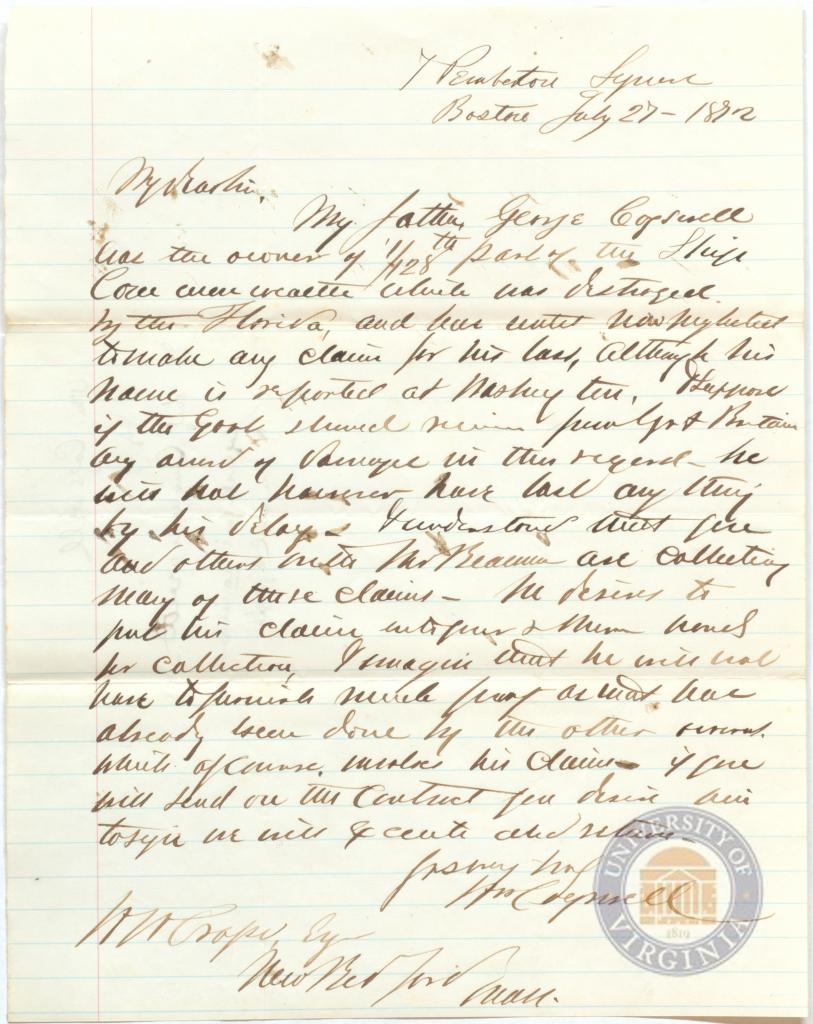 7 Pemberton Square
Boston July 27 - 1872
My dear sir,
My father, George Cogswell
was the owner of 1/128th part of the Ship
Commonwealth which was destroyed
by the Florida, and has until now neglected
to make any claim for his loss, although his
name is reported at Washington. I suppose
if the Govt should receive from Grt Britain
any award of damage in this regard - he
will not however have lost any thing
by his delay - I understand that you
and others with Mr Beaman are collecting
many of these claims - He desires to
put his claim into your & them hands
for collection, I imagine that he will not
have to furnish much proof as that has
already been done by the other owners.
which of course, involves his claim - if you
will send on the Contract you desire him
to sign we will execute and return -
Yrs very truly
Wm Cogswell
W W Crapo, Esq
New Bedford
Mass.
UNIVERSITY OF
VIRGINIA
1819